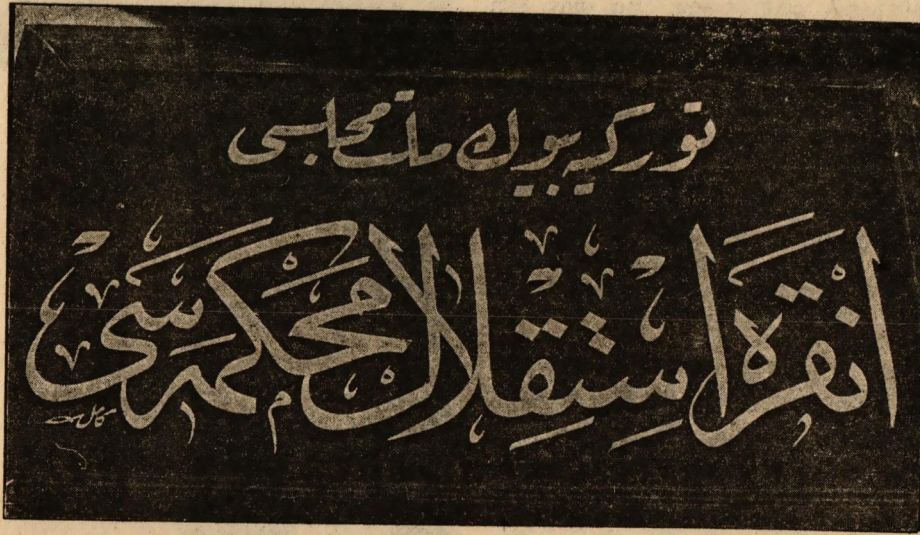 توركیه بیوك ملت مجلسی
اَنْقَرَه اِسْتِقْلَال مَحْكَمَه سَی